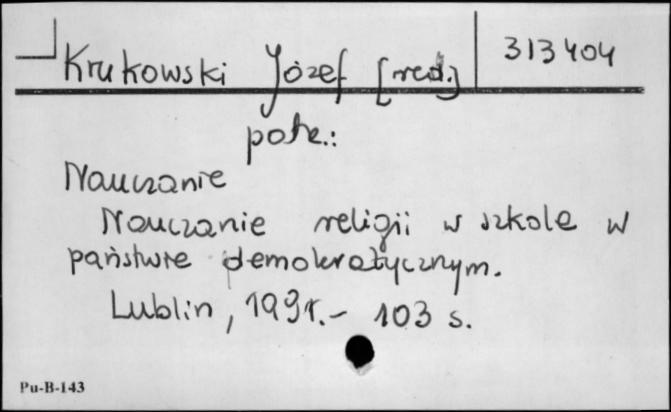 Krukowski Józef [red.] 313404
patrz:
Nauczanie
Nauczanie religii w szkole w
państwie demokratycznym.
Lublin, 1991.- 103 s.
Pu-B-143